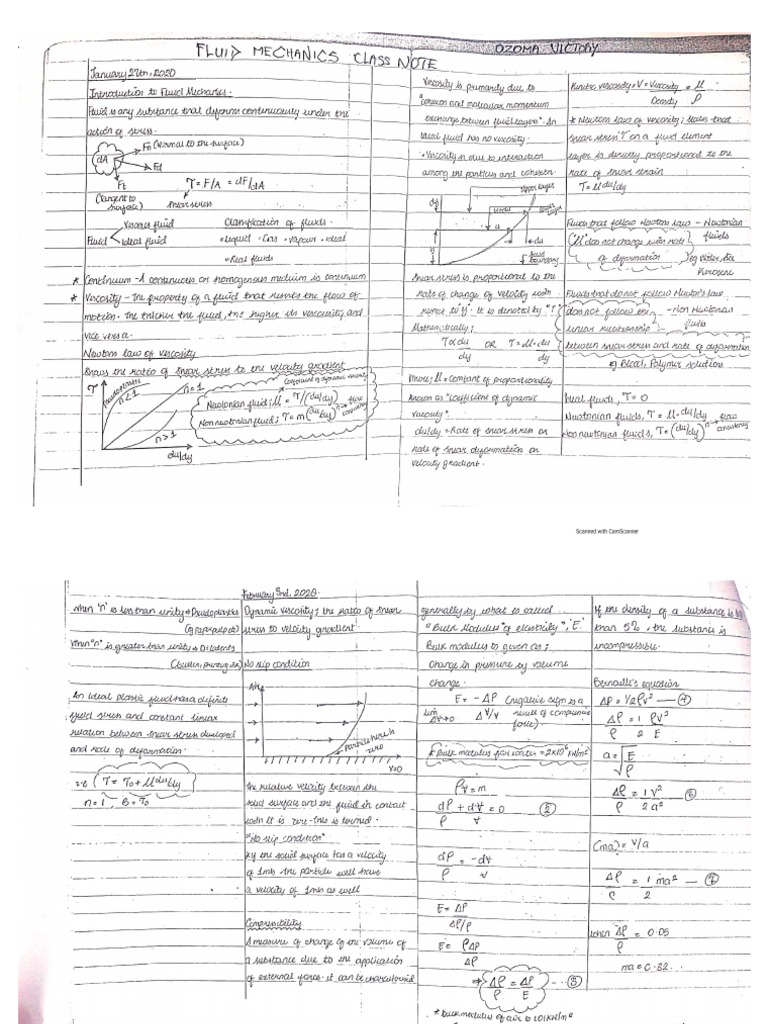 FLUID MECHANICS CLASS NOTE
OZOMA VICTORY
January 27th, 2020
Introduction to Fluid Mechanics.
Fluid is any substance that deform continuously under the
action of stress.
dA
Fn (Normal to the surface)
Fd
Ft
(Tangent to
surface)
τ = F/A = dF/dA
shear stress
Fluid
Viscous fluid
Ideal fluid
Classification of fluids.
• Liquid • Gas • Vapour • Ideal
• Real fluids
* Continuum - A continuous or homogenous medium is continuum
* Viscosity - The property of a fluid that resists the flow of
motion. The thicker the fluid, the higher its viscosity and
vice versa.
Newtons law of viscosity
Shows the ratio of shear stress to the velocity gradient
τ
Pseudoplastic
n<1
n=1
n>1
du/dy
Coefficient of dynamic viscosity
Newtonian fluid; μ = τ/(du/dy)
Non newtonian fluid; τ = m(du/dy)^n → flow
consistency
Viscosity is primarily due to
"cohesion and molecular momentum
exchange between fluid layers". An
ideal fluid has no viscosity.
• Viscosity is due to interaction
among the particles and cohesion.
upper layer
lower layer
dy
y
u+du
u
du
fluid
boundary
Shear stress is proportional to the
rate of change of velocity with
respect to 'y'. It is denoted by "τ"
Mathematically;
τ α du/dy OR τ = μ·du/dy
Where; μ = Constant of proportionality
known as "coefficient of dynamic
viscosity".
du/dy = Rate of shear stress or
rate of shear deformation or
velocity gradient.
Kinetic viscosity = V = Viscosity/Density = μ/ρ
* Newton law of viscosity; states that
shear stress 'τ' on a fluid element
layer is directly proportional to the
rate of shear strain
τ = μ du/dy
Fluids that follow Newtons law - Newtonian
fluids
("μ" does not change with rate
of deformation)
eg Water, Air
Kerosene
Fluids that do not follow Newton's law
- Non Newtonian
fluids
(does not follow the
linear relationship
between shear stress and rate of deformation)
eg Blood, Polymer solution
Ideal fluids, τ = 0
Newtonian fluids, τ = μ·du/dy
Non newtonian fluids, τ = (du/dy)^n → flow
consistency
Scanned with CamScanner
February 3rd, 2020
When "n" is less than unity → Pseudoplastics
(eg paper pulp etc)
When "n" is greater than unity → Dilatents
(butter, printing ink)
An Ideal plastic fluid has a definite
yield stress and constant linear
relation between shear stress developed
and rate of deformation.
i.e (τ = τ₀ + μ du/dy)
n = 1, B = τ₀
Dynamic viscosity; the ratio of shear
stress to velocity gradient
No slip condition
Particle here is
zero
V=0
the relative velocity between the
solid surface and the fluid in contact
with it is zero - this is termed.
"No slip condition"
If the solid surface has a velocity
of 1m/s the particle will have
a velocity of 1m/s as well
Compressibility
A measure of change of the volume of
a substance due to the application
of external force. it can be characterized
generally by what is called
"Bulk Modulus" of elasticity", 'E'.
Bulk modulus is given as;
Change in pressure by volume
change.
E = -ΔP
lim Δ∀→0
Δ∀/∀
(negative sign is a
result of compressive
force).
* Bulk modulus for water = 2×10⁶ kN/m²
ρ∀ = m
dρ/ρ + d∀/∀ = 0 — (2)
dρ/ρ = -d∀/∀
E = ΔP
Δρ/ρ
E = ρΔP
Δρ
⇒ Δρ/ρ = ΔP/E — (3)
* Bulk modulus of air is 101 kN/m²
If the density of a substance is
than 5%, the substance is
incompressible.
Bernoulli's equation
ΔP = 1/2 ρV² — (4)
Δρ/ρ = 1/2 ρV²/E
a = √(E/ρ)
Δρ/ρ = 1/2 V²/a²
(ma) = V/a
Δρ/ρ = 1/2 ma²
when Δρ/ρ = 0.05
ma = 0.32.